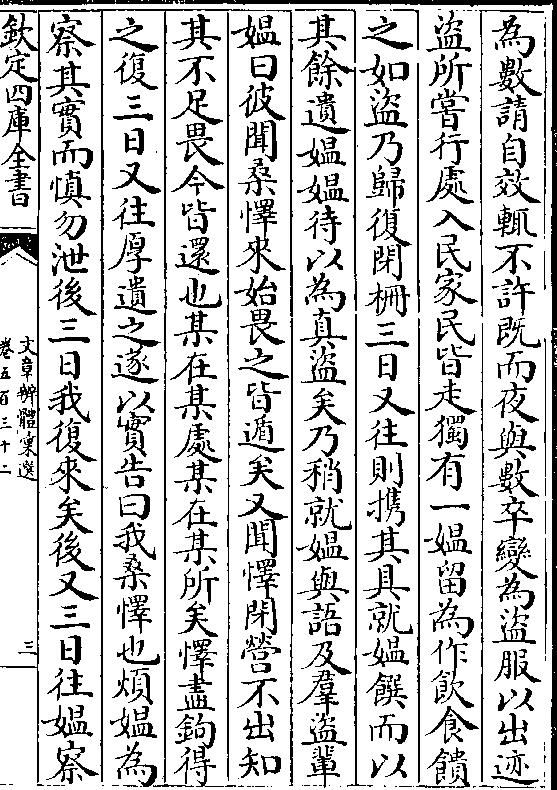 為數請自效輒不許既而夜與數卒變為盜服以出迹
盜所嘗行處入民家民皆走獨有一媪留為作飲食饋
之如盜乃歸復閉柵三日又往則擕其具就媪饌而以
其餘遺媪媪待以為真盜矣乃稍就媪與語及羣盜輩
媪曰彼聞桑懌來始畏之皆遁矣又聞懌閉營不出知
其不足畏今皆還也某在某處某在某所矣懌盡鉤得
之復三日又往厚遺之遂以實告曰我桑懌也煩媪為
察其實而慎勿泄後三日我復來矣後又三日往媪察
欽定四庫全書
文章辨體彚選
卷五百三十二
三